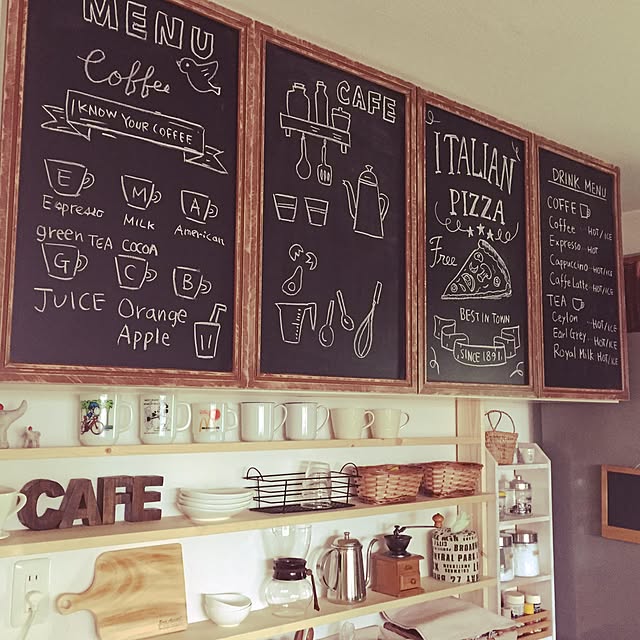 MENU
Coffee
I KNOW YOUR COFFEE
E M A
Espresso MILK American
green TEA COCOA
G C B
JUICE Orange
Apple
CAFE
ITALIAN
PIZZA
Free
BEST IN TOWN
SINCE 1891.
DRINK MENU
COFFE
Coffee ...HOT/ICE
Espresso...HOT
Cappuccino...HOT/ICE
Caffe Latte...HOT/ICE
TEA
Ceylon ...HOT/ICE
Earl Grey...HOT/ICE
Royal Milk HOT/ICE
CAFE